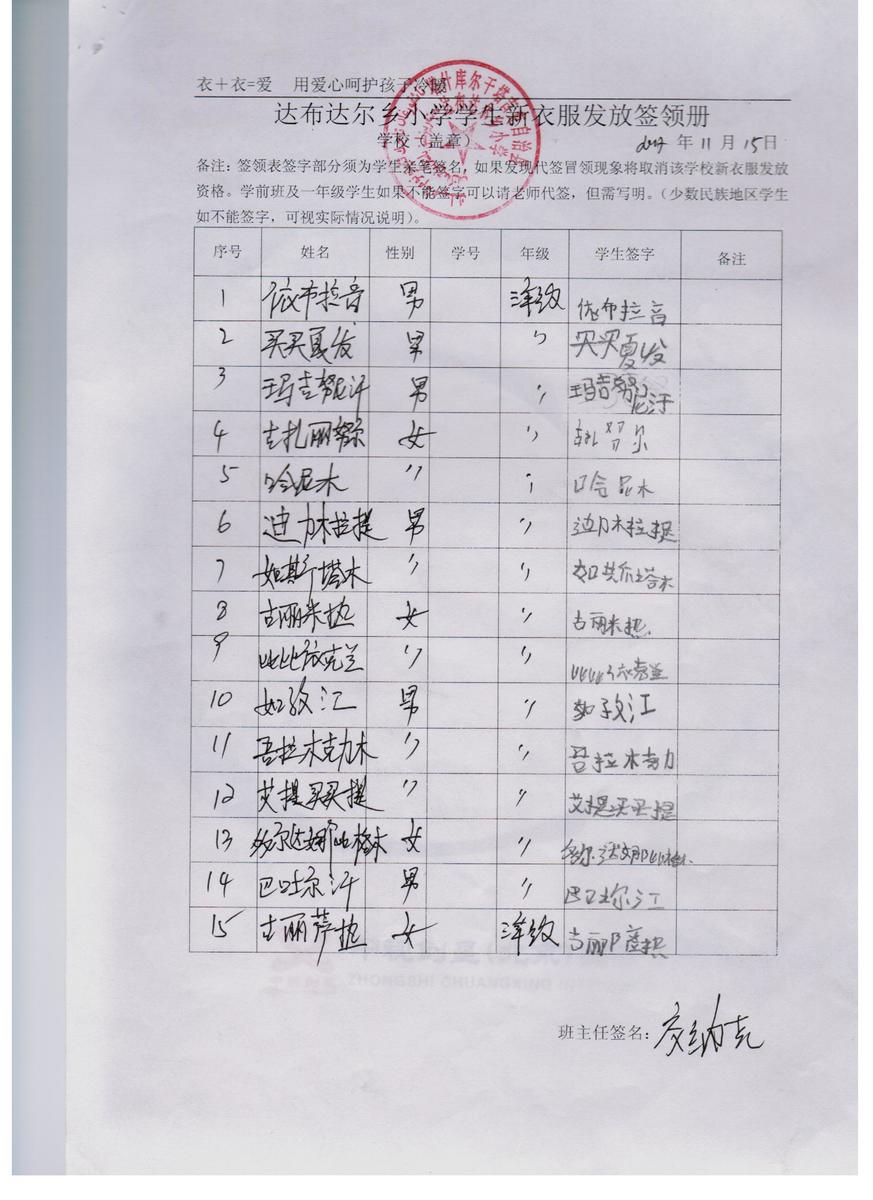 衣＋衣=爱 用爱心呵护孩子冷暖
达布达尔乡小学学生新衣服发放签领册
学校（盖章） 2017 年 11 月 15日
备注：签领表签字部分须为学生亲笔签名，如果发现代签冒领现象将取消该学校新衣服发放
资格。学前班及一年级学生如果不能签字可以请老师代签，但需写明。（少数民族地区学生
如不能签字，可视实际情况说明）。
序号 姓名 性别 学号 年级 学生签字 备注
1 依布拉音 男 依布拉音
2 买买夏发 男 〃 买买夏发
3 玛吉努尼汗 男 〃 玛吉努尼汗
4 古扎丽努尔 女 〃
5 哈尼木 〃 〃 哈尼木
6 迪力木拉提 男 〃 迪力木拉提
7 如其斯塔木 〃 〃
8 古丽米热 女 〃 古丽米热
9 比比依克兰 〃 〃 比比依克兰
10 如孜江 男 〃 如孜江
11 吾拉木克力木 〃 〃 吾拉木克力
12 艾提买买提 〃 〃 艾提买买提
13 女 〃
14 巴吐尔汗 男 〃 巴吐尔江
15 古丽萨热 女
班主任签名：